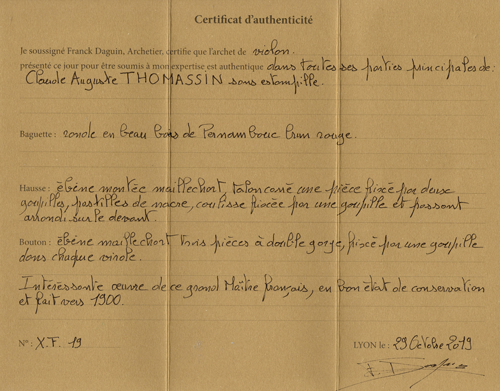 Certificat d'authenticité
Je soussigné Franck Daguin, Archetier, certifie que l'archet de violon.
présenté ce jour pour être soumis à mon expertise est authentique dans toutes ses parties principales de:
Claude Auguste THOMASSIN sans estampille.
Baguette : ronde en beau bois de Pernambouc brun rouge.
Hausse : ébène montée maillechort, talon carré une pièce fixée par deux
goupilles, pastilles de nacre, coulisse fixée par une goupille et passant
arrondi sur le devant.
Bouton : ébène maillechort trois pièces à double gorge, fixée par une goupille
dans chaque virole.
Intéressante œuvre de ce grand Maître français, en bon état de conservation
et fait vers 1900.
N° : X.F. 19
LYON le : 29 Octobre 2019